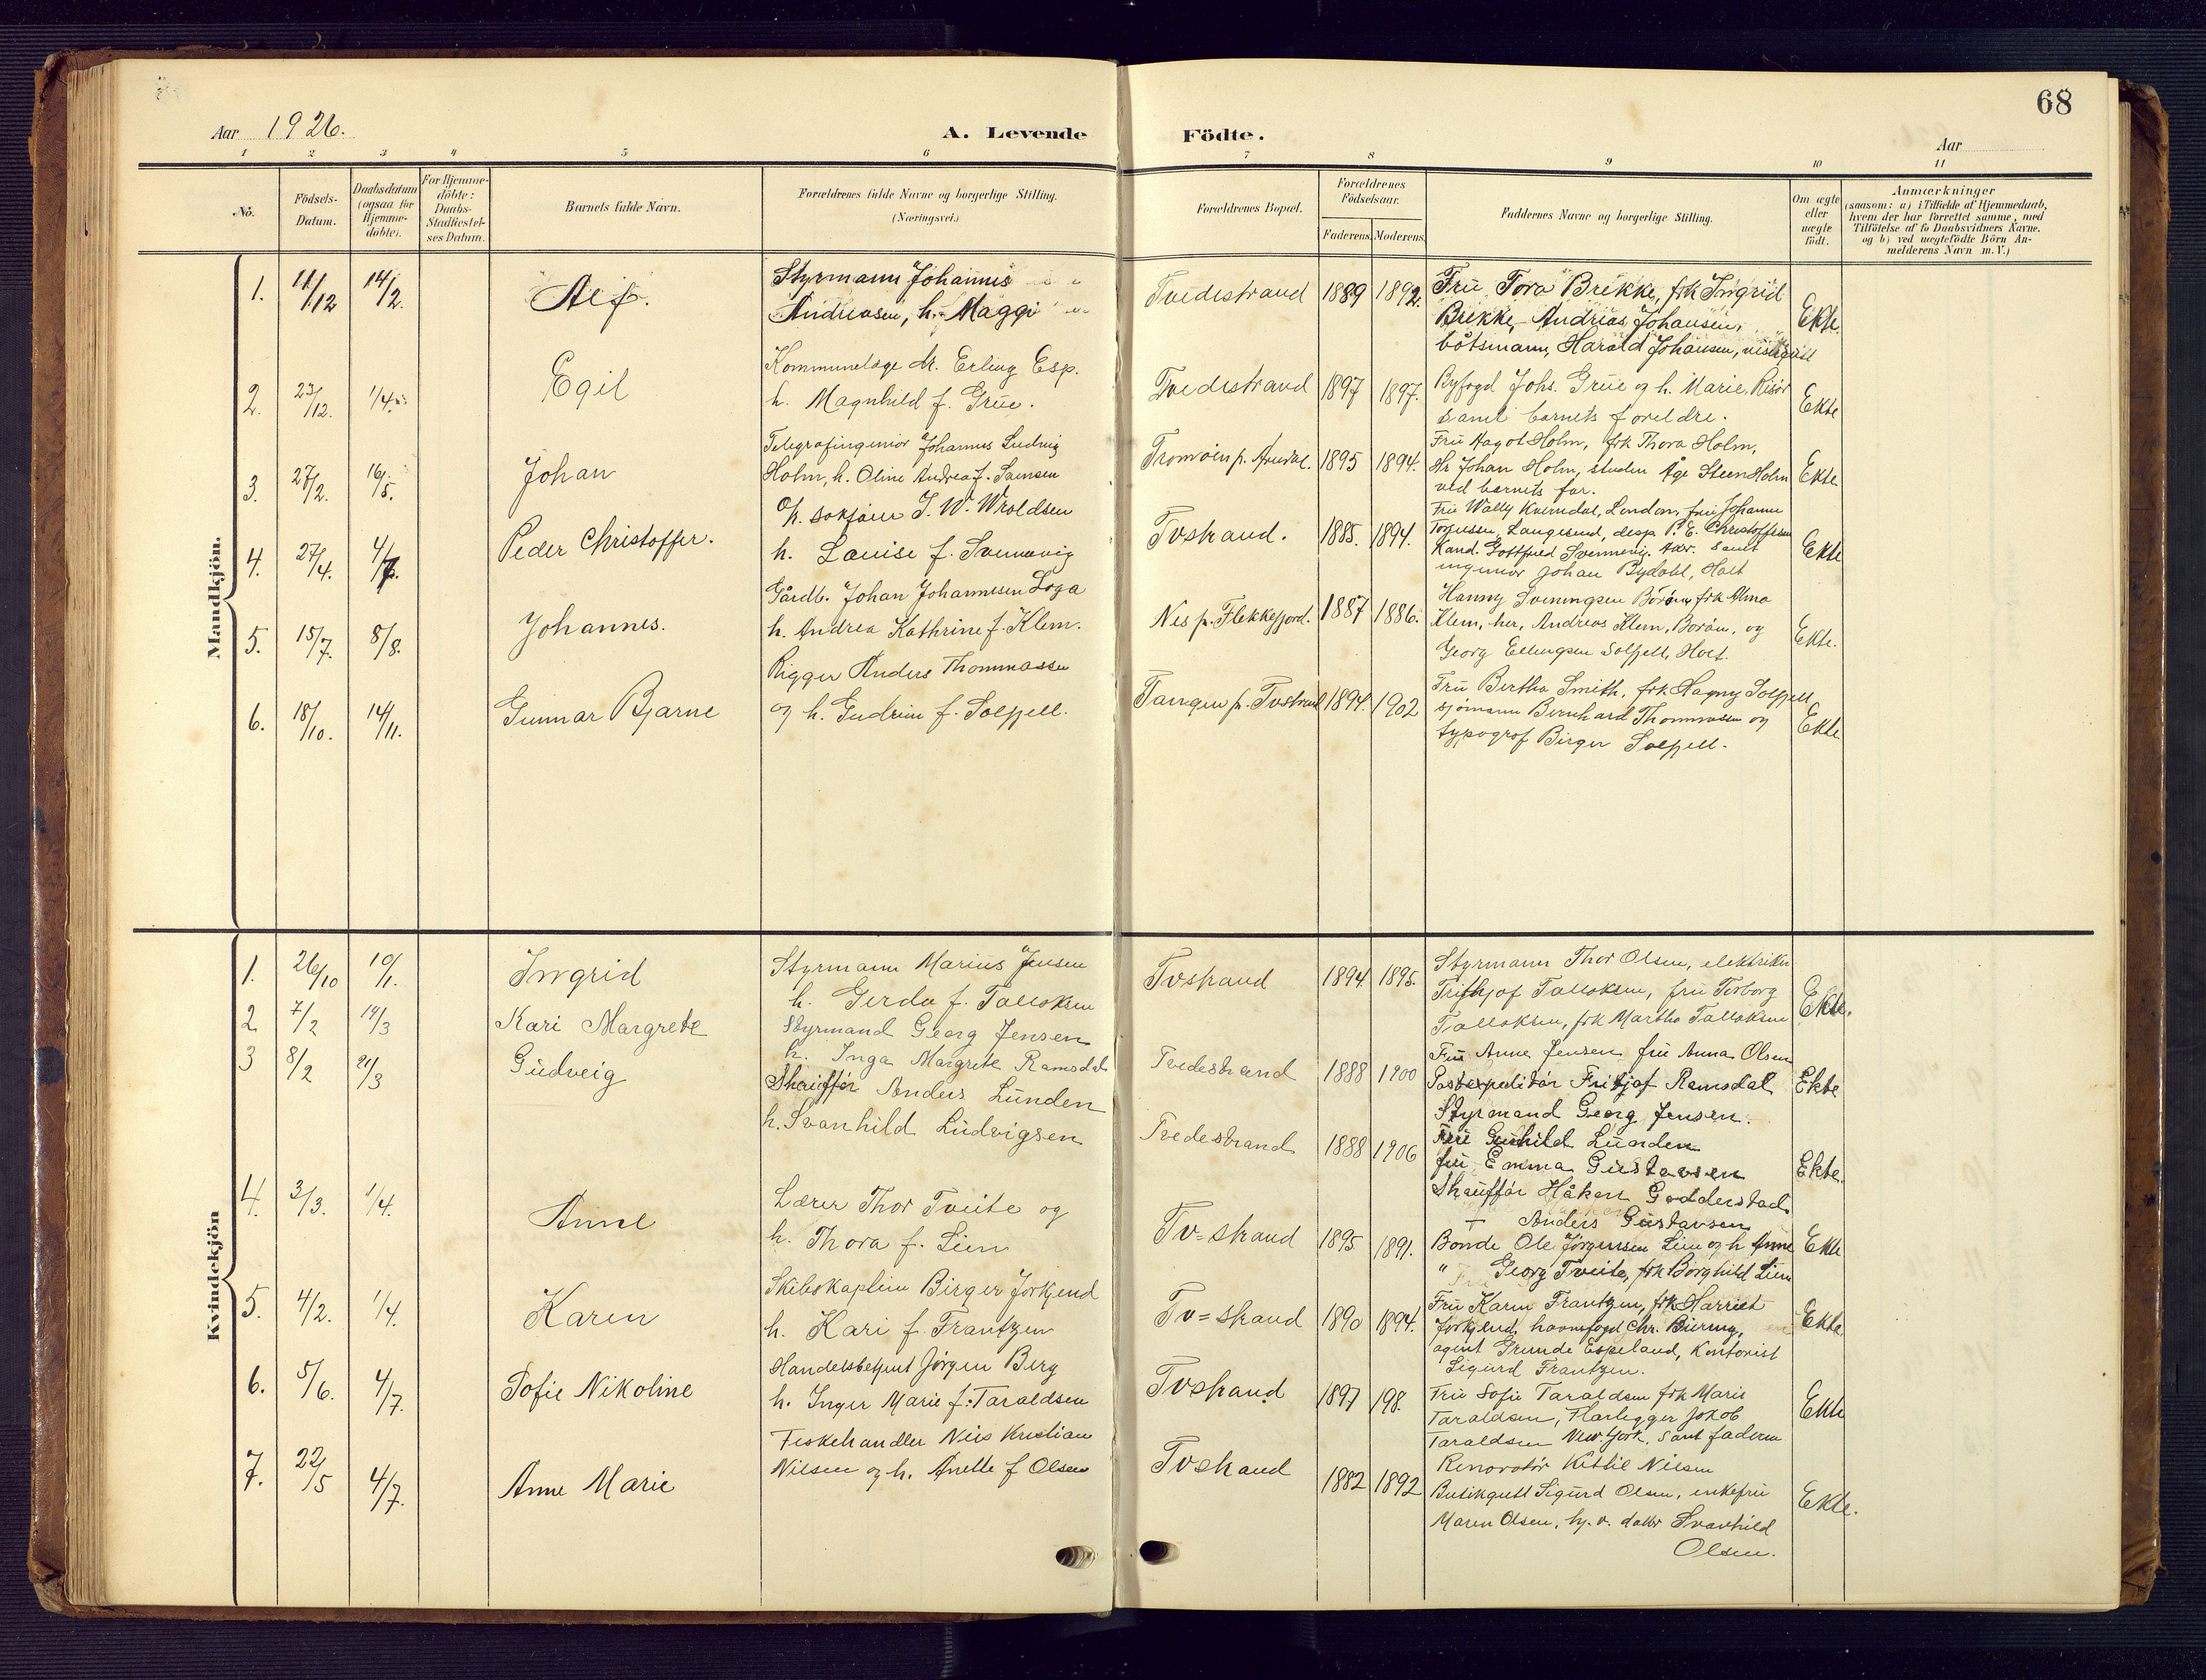 68
Aar 1926.
A. Levende Födte.
Aar
1 2 3 4 5 6 7 8 9 10 11
No.
Födsels-Datum.
Daabsdatum (ogsaa for Hjemme-döbte).
For Hjemme-döbte: Daabs-Stadfæstel-ses Datum.
Barnets fulde Navn.
Forældrenes fulde Navne og borgerlige Stilling.
(Næringsvei.)
Forældrenes Bopæl.
Forældrenes Födselsaar.
Faderens. Moderens.
Faddernes Navne og borgerlige Stilling.
Om ægte eller uægte födt.
Anmærkninger
(saasom: a) i Tilfælde af Hjemmedaab,
hvem der har forrettet samme, med
Tilföielse af to Daabsvidners Navne.
og b) ved uægtefödte Börn An-
melderens Navn m. V.)
Mandkjön.
1. 11/12 14/2. Alf.
Styrmann Johannes
Andreasen, h. Maggi
Tvedestrand 1889 1892.
Fru Tora Brekke, frk Ingrid
Brekke, Andreas Johansen,
båtsmann, Harald Johansen,
Ekte.
2. 23/12. 1/4. Egil
Kommunelæge dr. Erling Esp.
h. Magnhild f. Grue.
Tvedestrand 1897 1897.
Byfogd Johs. Grue og h. Marie, Risør
samt barnets foreldre.
Ekte
3. 27/2. 16/5. Johan
Telegrafingeniør Johannes Ludvig
Holm, h. Oline Andrea f. Samsen
Tromöien p. Arendal. 1895 1894.
Fru Aagot Holm, frk Thora Holm,
Hr Johan Holm, studen Åge Steen Holm
ved barnets far.
Ekte.
4. 27/4. 4/7. Peder Christoffer.
O.r. sakfører T. W. Wroldsen
h. Louise f. Svennevig
Tvstrand. 1885. 1894.
Fru Wally Kverndal, London, frue Johanne
Torjussen, Langesund, desp. P. E. Christoffersen
Kand. Gottfred Svennevig, samt
ingeniør Johan Bydahl, Holt
Ekte
5. 15/7. 8/8. Johannes.
Gårdb. Johan Johannessen Loga
h. Andrea Kathrine f. Klem.
Nes p. Flekkefjord. 1887 1886.
Hanny Sveningsen Borøen frk Alma
Klem, her, Andreas Klem, Borøen, og
Georg Ellingsen Solfjell, Holt.
Ekte.
6. 18/10. 14/11. Gunnar Bjarne
Rigger Anders Thommassen
og h. Gudrun f. Solfjell.
Tangen p. Tvstrand 1894. 1902
Fru Bertha Smith, frk Hagny Solfjell
sjömann Bernhard Thommasen og
typograf Birger Solfjell.
Ekte
Kvindekjön
1. 26/10 10/1. Ingrid
Styrmann Marius Jensen
h. Gerda f. Tallaksen
Tvstrand 1894 1895.
Styrmann Thor Olsen, elektriker
Trithjof Tallaksen, fru Torborg
Tallaksen, frk Martha Tallaksen
Ekte.
2. 7/2 14/3 Kari Margrete
Styrmand Georg Jensen
h. Inga Margrete Ramsdal
Tvedestrand 1888 1900
Fru Anne Jensen fru Anna Olsen
Postexpeditør Fritjof Ramsdal
Styrmand Georg Jensen.
Ekte
3 8/2 21/3 Gudveig
Shauffør Anders Lunden
h. Svanhild Ludvigsen
Tvedestrand 1888 1906
Fru Gunhild Lunden
fru Emma Gustavsen
Shauffør Håken Godderstad
Anders Gustavsen
Ekte.
4. 3/3. 1/4. Anne
Lærer Thor Tveite og
h. Thora f. Lien
Tv=strand 1895 1891.
Bonde Ole Jörgensen Lien og h Anne
" Georg Tveite, frk Borghild Lien
Ekte
5. 4/2. 1/4. Karen
Skibskaptein Birger Jorkjend
h. Kari f. Frantzen
Tv=strand 1890 1894.
Fru Karen Frantzen, frk Harriet
Jorkjend, havnefogd Chr. Biering,
agent Grunde Espeland, Kontorist
Sigurd Frantzen.
Ekte
6. 5/6. 4/7. Sofie Nikoline
Handelsbetjent Jørgen Berg
h. Inger Marie f. Taraldsen
Tvstrand 1897 198.
Fru Sofie Taraldsen frk Marie
Taraldsen, Rørlegger Jakob
Taraldsen New York, samt faderen
Ekte
7. 22/5 4/7. Anne Marie
Fiskehandler Nils Kristian
Nilsen og h. Anette f Olsen
Tvstrand 1882 1892
Renovatør Kittil Nilsen
Butikgutt Sigurd Olsen, enkefru
Maren Olsen, hj. v. datter Svanhild
Olsen.
Ekte.